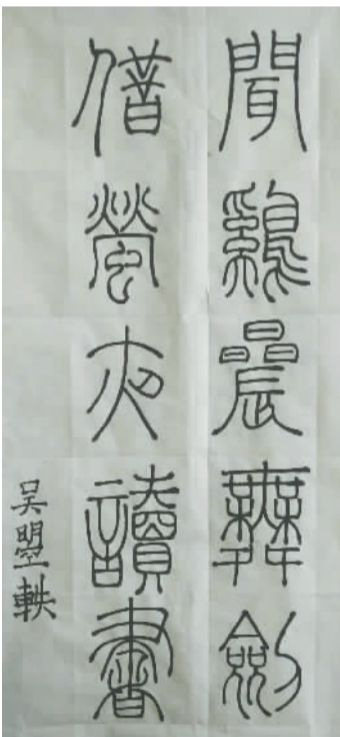 聞鷄晨舞劍
借螢夜讀書
吴曌軼